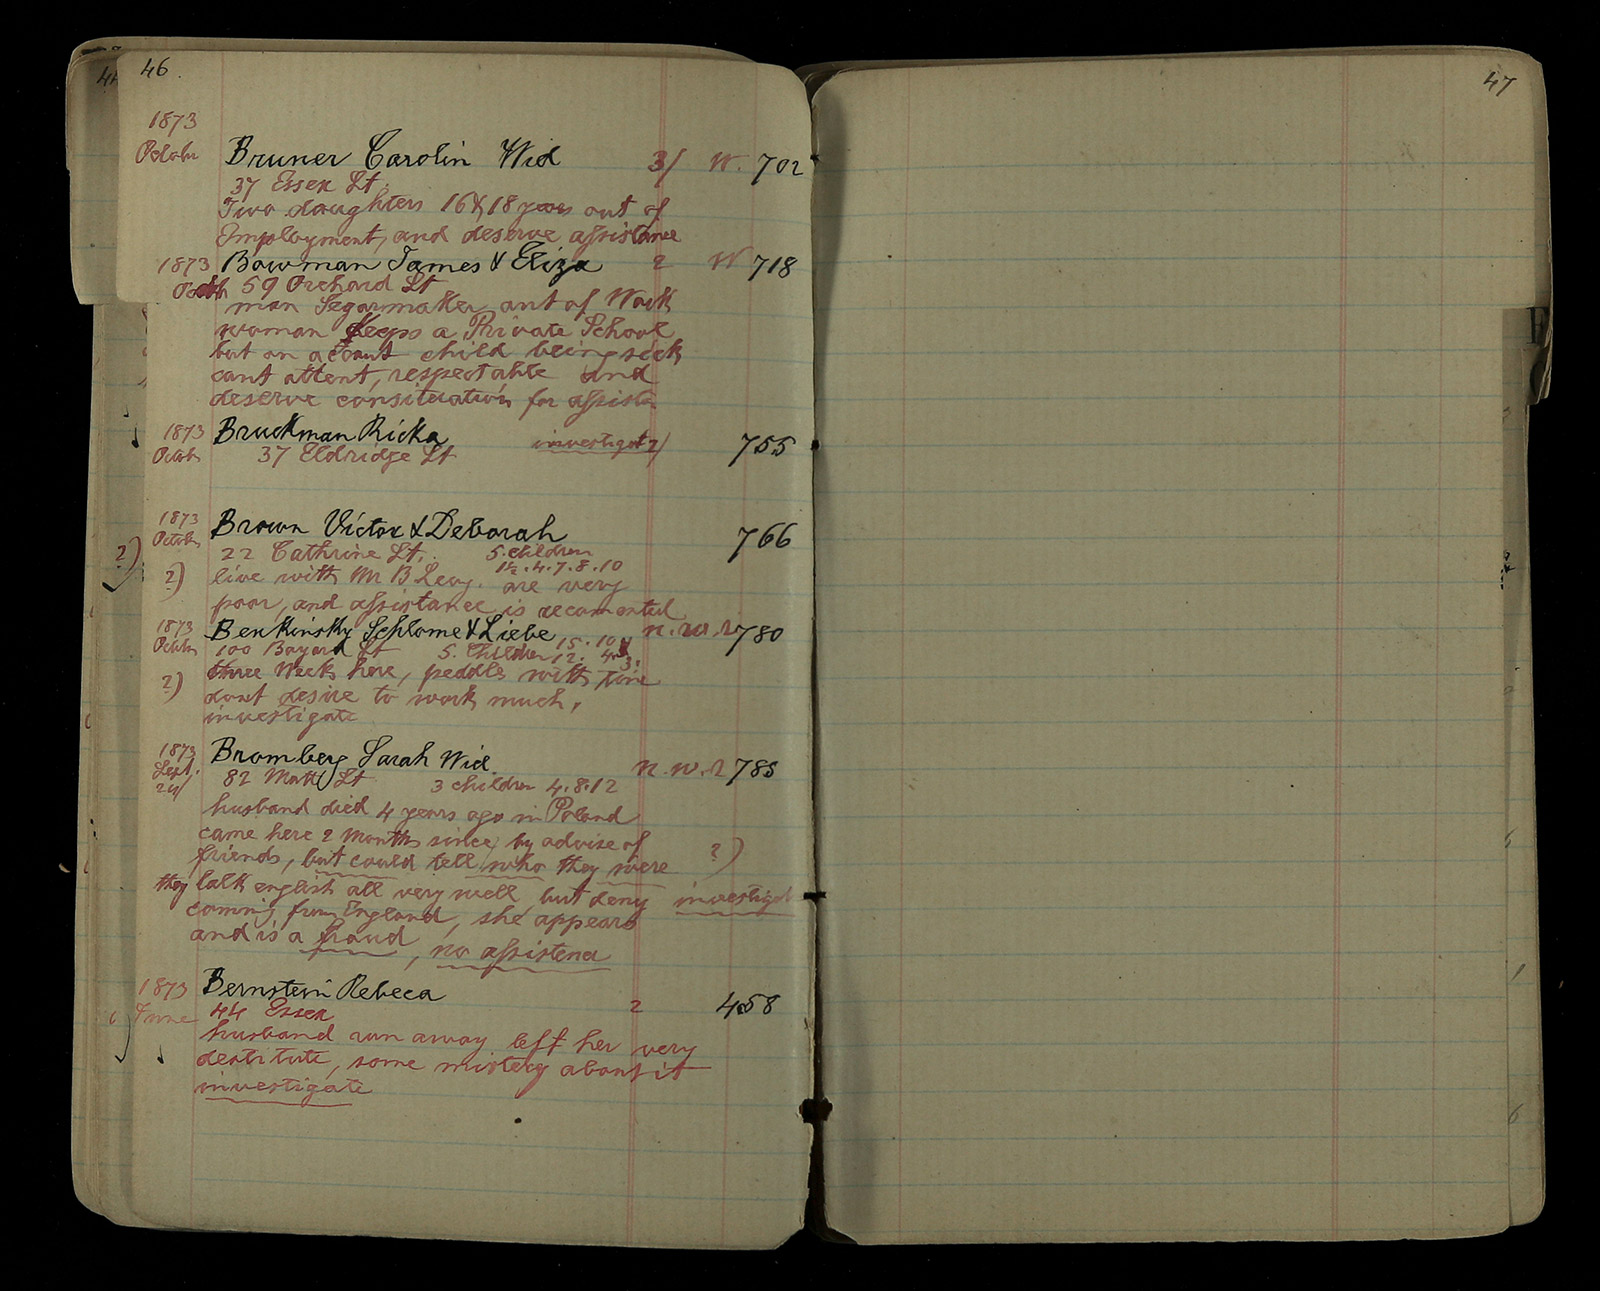 46.
47
1873
October Bruner Carolin Wid 3/ W. 702
37 Essex St.
Two daughters 16 & 18 years out of
Employment, and deserve assistance
1873 Bowman James & Eliza 2 W 718
Octob 59 Orchard St
man Segarmaker out of Work
woman Keeps a Private School
but on acount child being sick
cant attent, respectable and
deserve consideration for assist
1873 Bruckman Ricka investigat 2/ 755
Octob 37 Eldridge St
1873 Brown Victor & Deborah 766
October 22 Cathrine St. 5 children
1½.4.7.8.10
2) live with Mr B Levy. are very
poor, and assistance is recomented
1873 Benkinsky Schlome & Liebe n.w.2 780
Octobr 100 Bayard St 5. Children 15.10
12. 4. 3.
three Weeks here, peddles with tine
2) dont desire to work much,
investigate
1873 Bromberg Sarah Wid. n.w.2 785
Sept. 82 Mott St 3 children 4.8.12
24/
husband died 4 years ago in Poland
came here 2 Months since, by advise of
friends, but could tell who they were ?)
they talk english all very well, but deny investigat
coming from England, she appears
and is a fraud, no assistena
1873 Bernstein Rebeca 2 458
June 44 Essex
husband run away left her very
destitute, some mistery about it
investigate